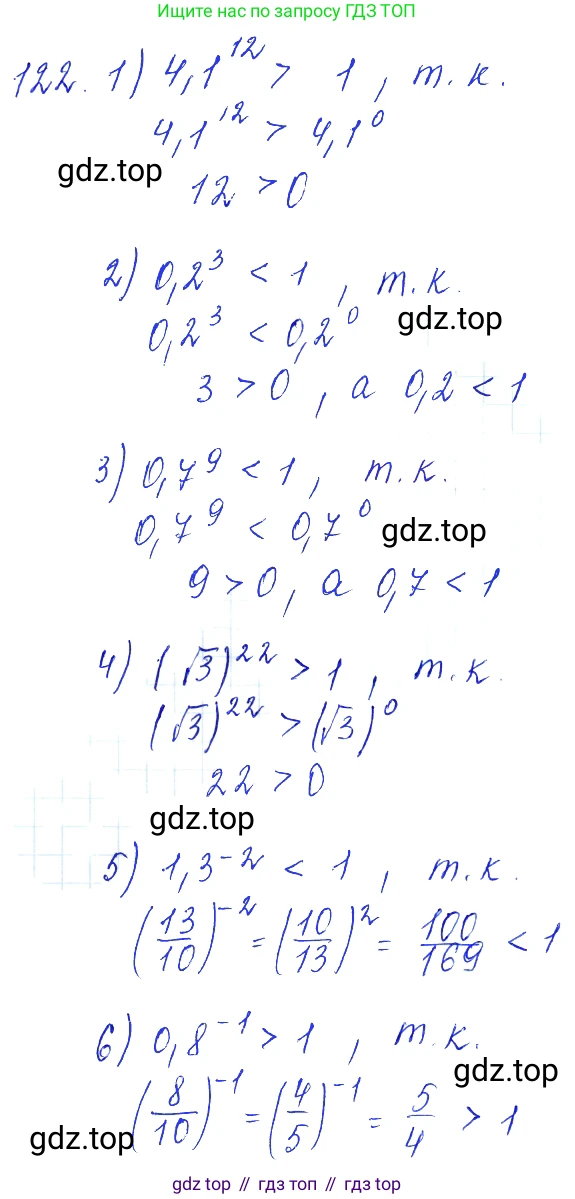 Ищите нас по запросу ГДЗ ТОП
122. 1) 4,1^12 > 1, т.к.
4,1^12 > 4,1^0
gdz.top
12 > 0
2) 0,2^3 < 1, т.к.
0,2^3 < 0,2^0
gdz.top
3 > 0, а 0,2 < 1
3) 0,7^9 < 1, т.к.
0,7^9 < 0,7^0
gdz.top
9 > 0, а 0,7 < 1
4) (√3)^22 > 1, т.к.
(√3)^22 > (√3)^0
22 > 0
gdz.top
5) 1,3^-2 < 1, т.к.
(13/10)^-2 = (10/13)^2 = 100/169 < 1
6) 0,8^-1 > 1, т.к.
gdz.top
(8/10)^-1 = (4/5)^-1 = 5/4 > 1
gdz.top
gdz top // гдз топ // gdz top